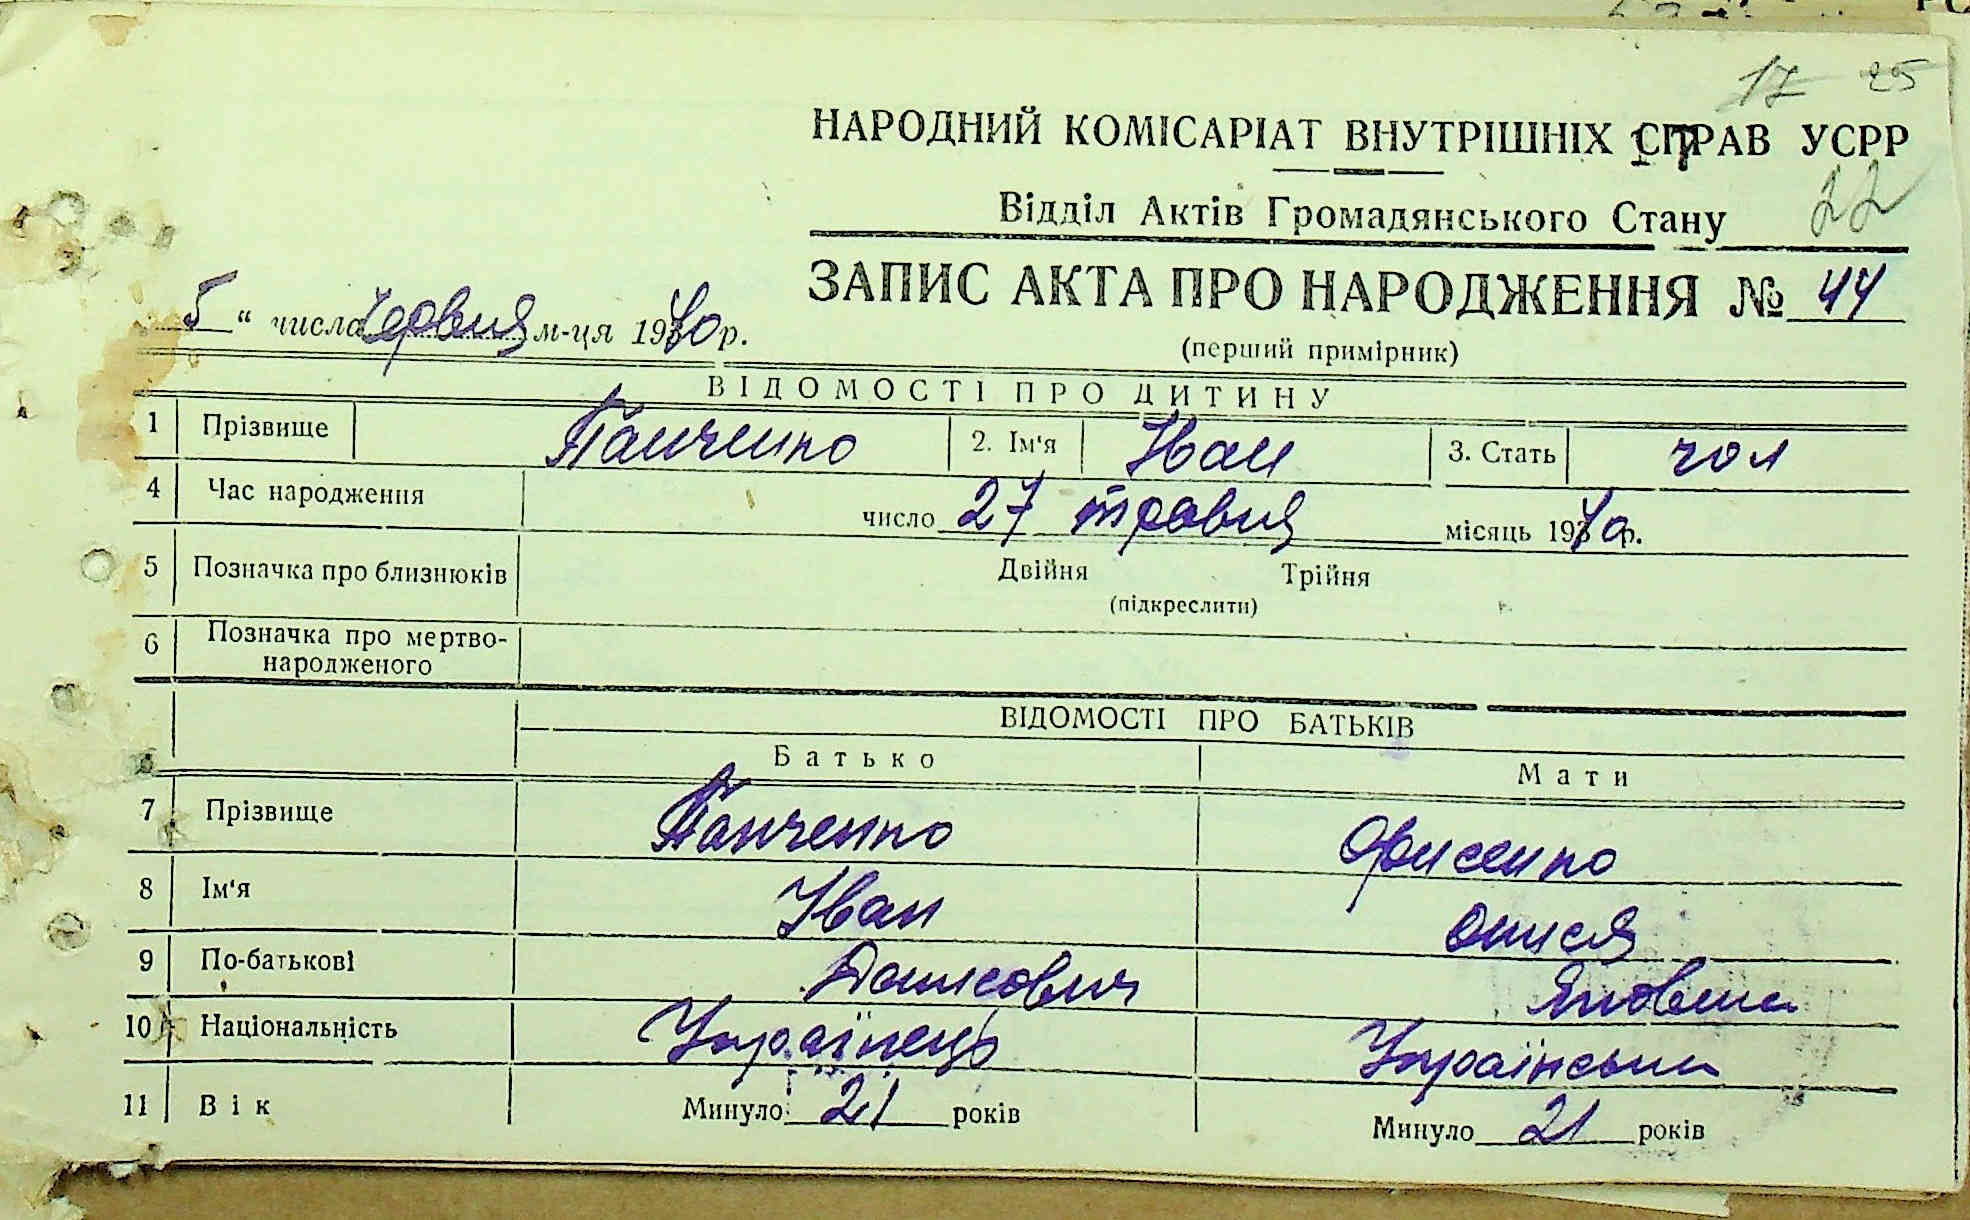 17 25
НАРОДНИЙ КОМІСАРІАТ ВНУТРІШНІХ СПРАВ УСРР
17
Відділ Актів Громадянського Стану
22
ЗАПИС АКТА ПРО НАРОДЖЕННЯ № 44
5 " числа Червня м-ця 1940 р.
(перший примірник)
ВІДОМОСТІ ПРО ДИТИНУ
1 Прізвище Панченко 2. Ім'я Іван 3. Стать чол
4 Час народження число 27 травня місяць 1940 р.
5 Позначка про близнюків Двійня Трійня
(підкреслити)
6 Позначка про мертво-
народженого
ВІДОМОСТІ ПРО БАТЬКІВ
Батько Мати
7 Прізвище Панченко Фисенко
8 Ім'я Іван Онися
9 По-батькові Яковна
10 Національність Українець Українська
11 Вік Минуло 21 років Минуло 21 років